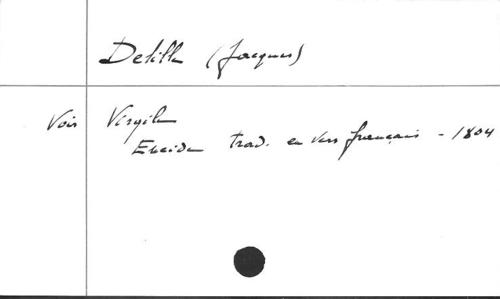 Delille (Jacques)
Voir Virgile
Eneide trad. en vers français - 1804